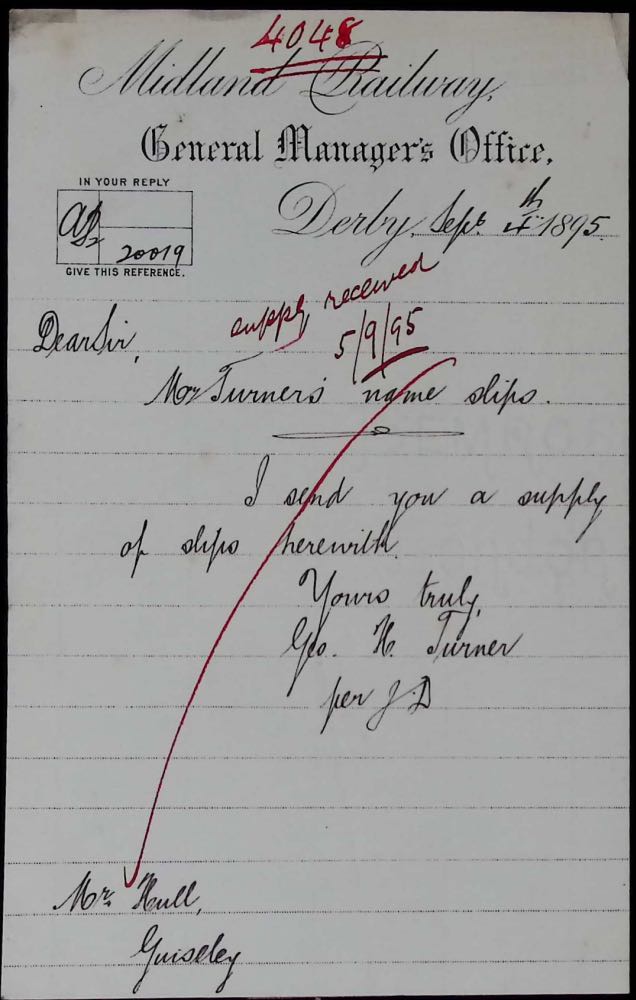 4048
Midland Railway,
General Manager's Office,
IN YOUR REPLY
20019
GIVE THIS REFERENCE.
Derby, Sept. 4th 1895.
supply received
5/9/95
Dear Sir,
Mr Turner's name slips.
I send you a supply
of slips herewith.
Yours truly,
Geo. H. Turner
per J.D
Mr. Hull,
Guiseley